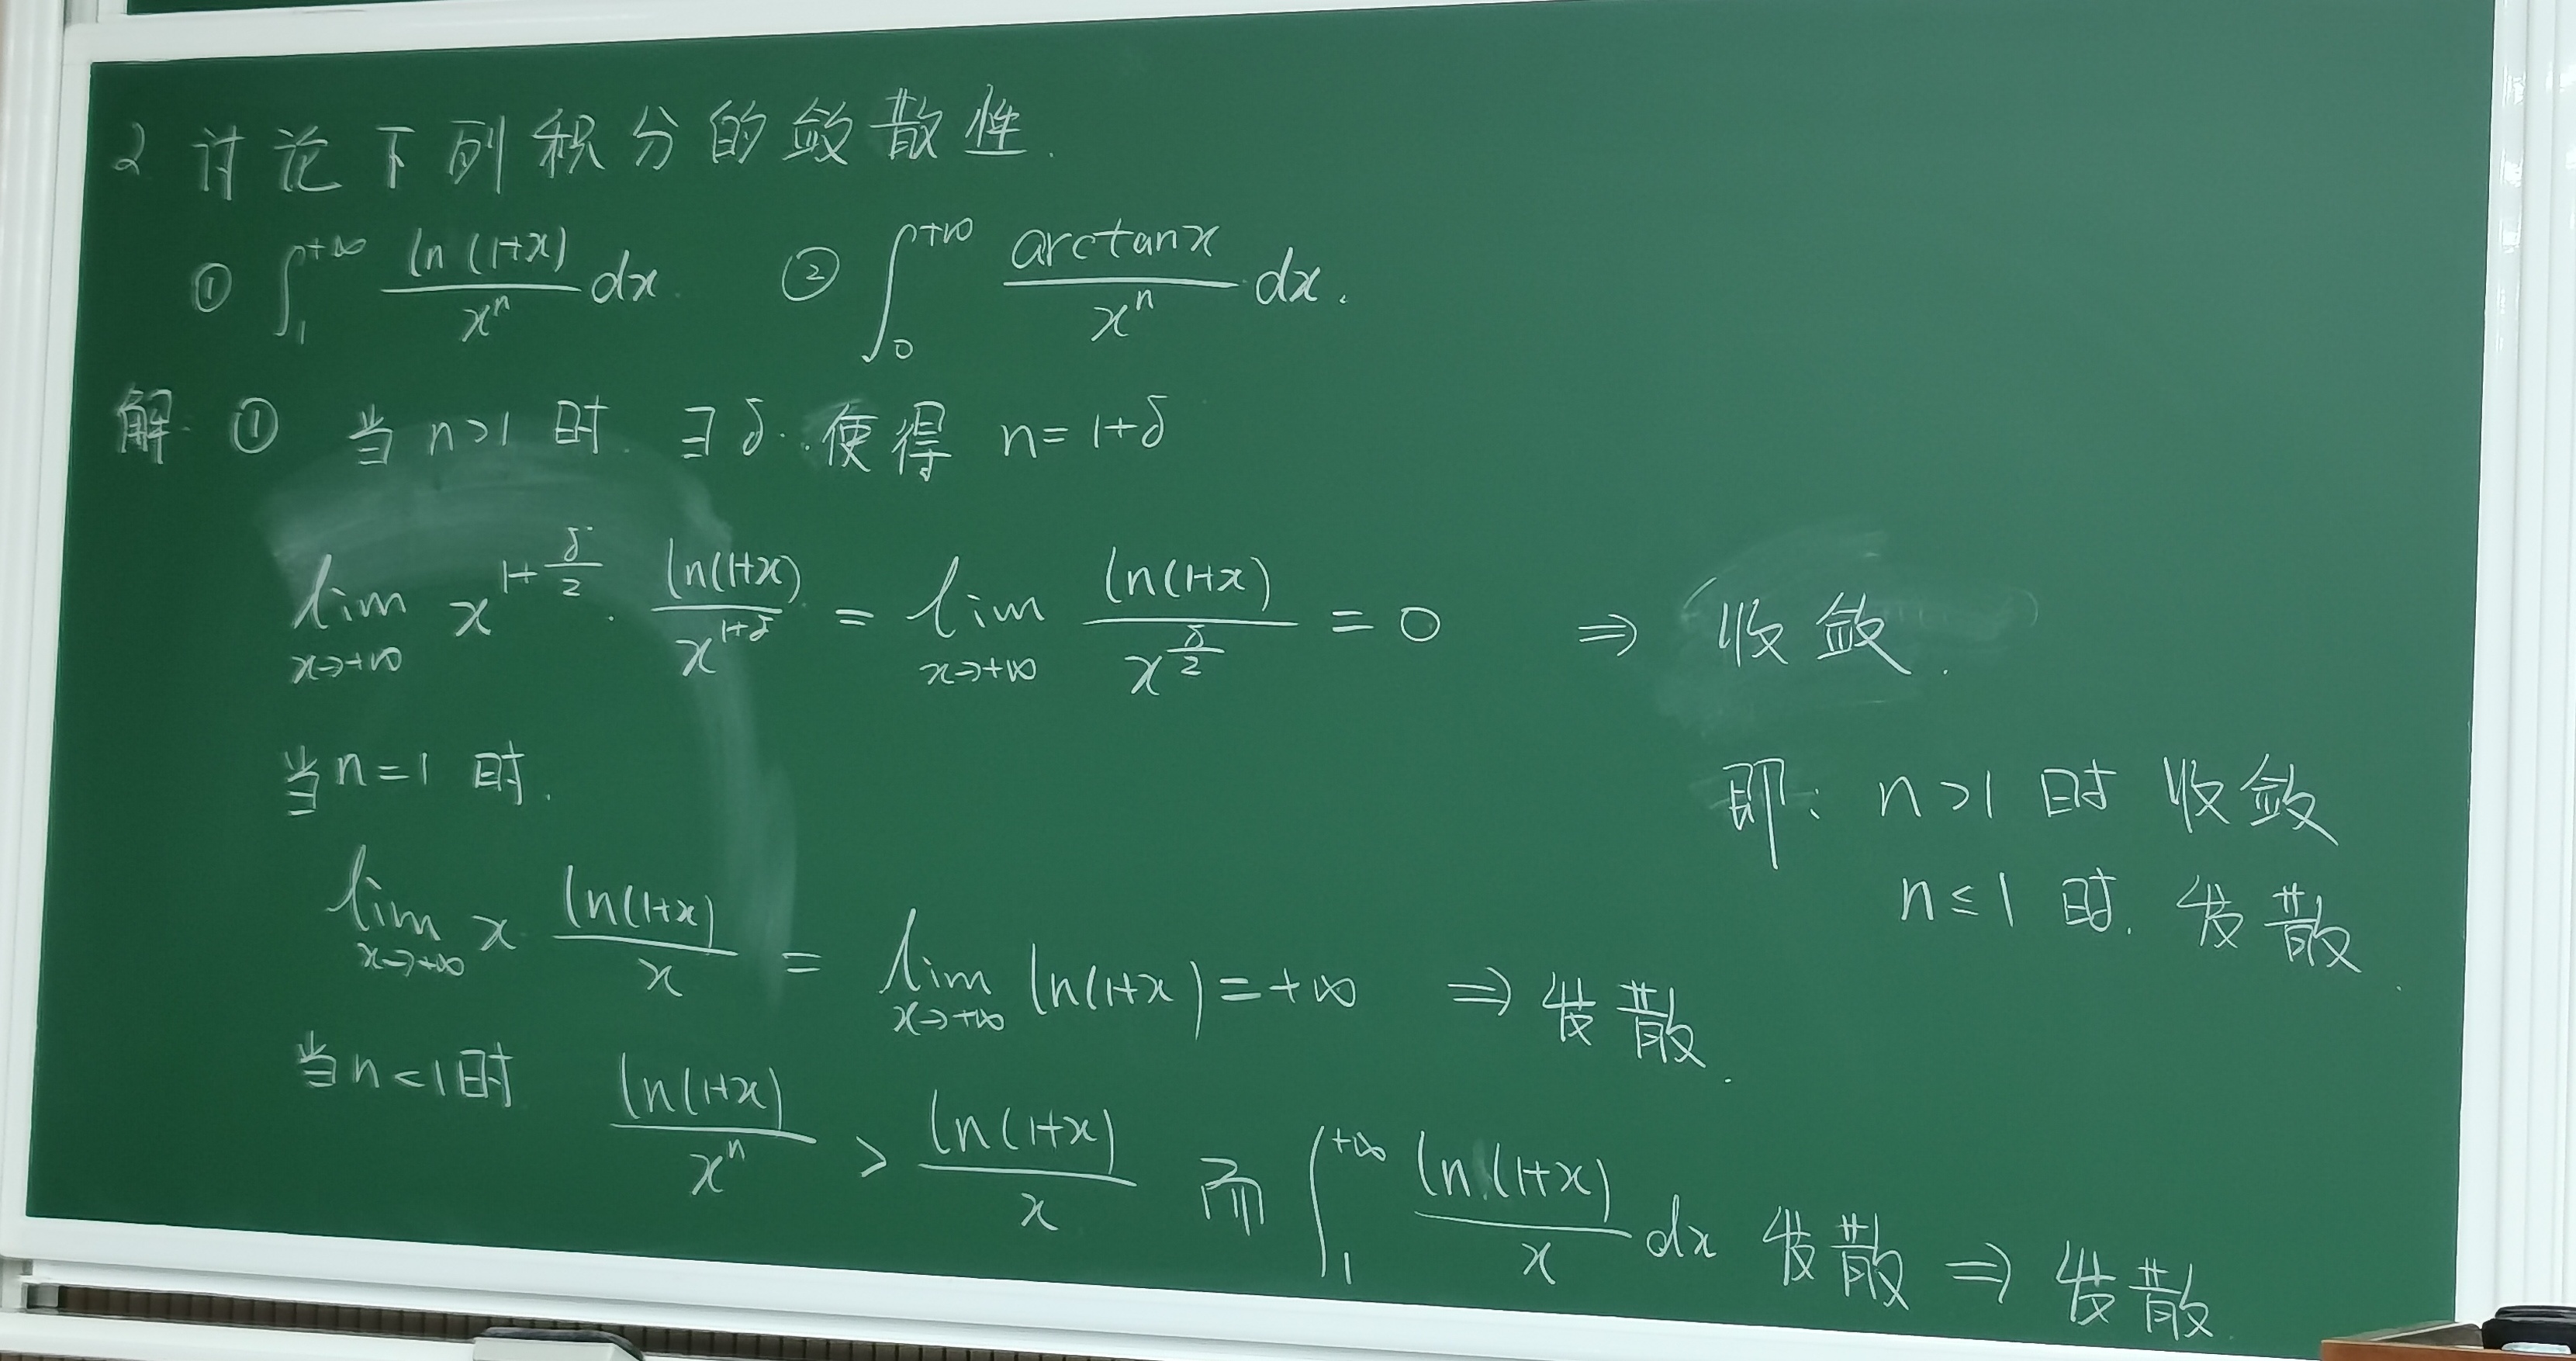 2 讨论下列积分的敛散性.
① ∫₁^{+∞} \frac{ln(1+x)}{x^n} dx. ② ∫₀^{+∞} \frac{arctanx}{x^n} dx.
解: ① 当 n>1 时 ∃δ. 使得 n=1+δ
lim_{x→+∞} x^{1+\frac{δ}{2}} · \frac{ln(1+x)}{x^{1+δ}} = lim_{x→+∞} \frac{ln(1+x)}{x^{\frac{δ}{2}}} = 0 ⇒ 收敛.
当 n=1 时.
lim_{x→+∞} x \frac{ln(1+x)}{x} = lim_{x→+∞} ln(1+x) = +∞ ⇒ 发散.
当 n<1 时 \frac{ln(1+x)}{x^n} > \frac{ln(1+x)}{x} 而 ∫₁^{+∞} \frac{ln(1+x)}{x} dx 发散 ⇒ 发散
即: n>1 时 收敛
n≤1 时. 发散.